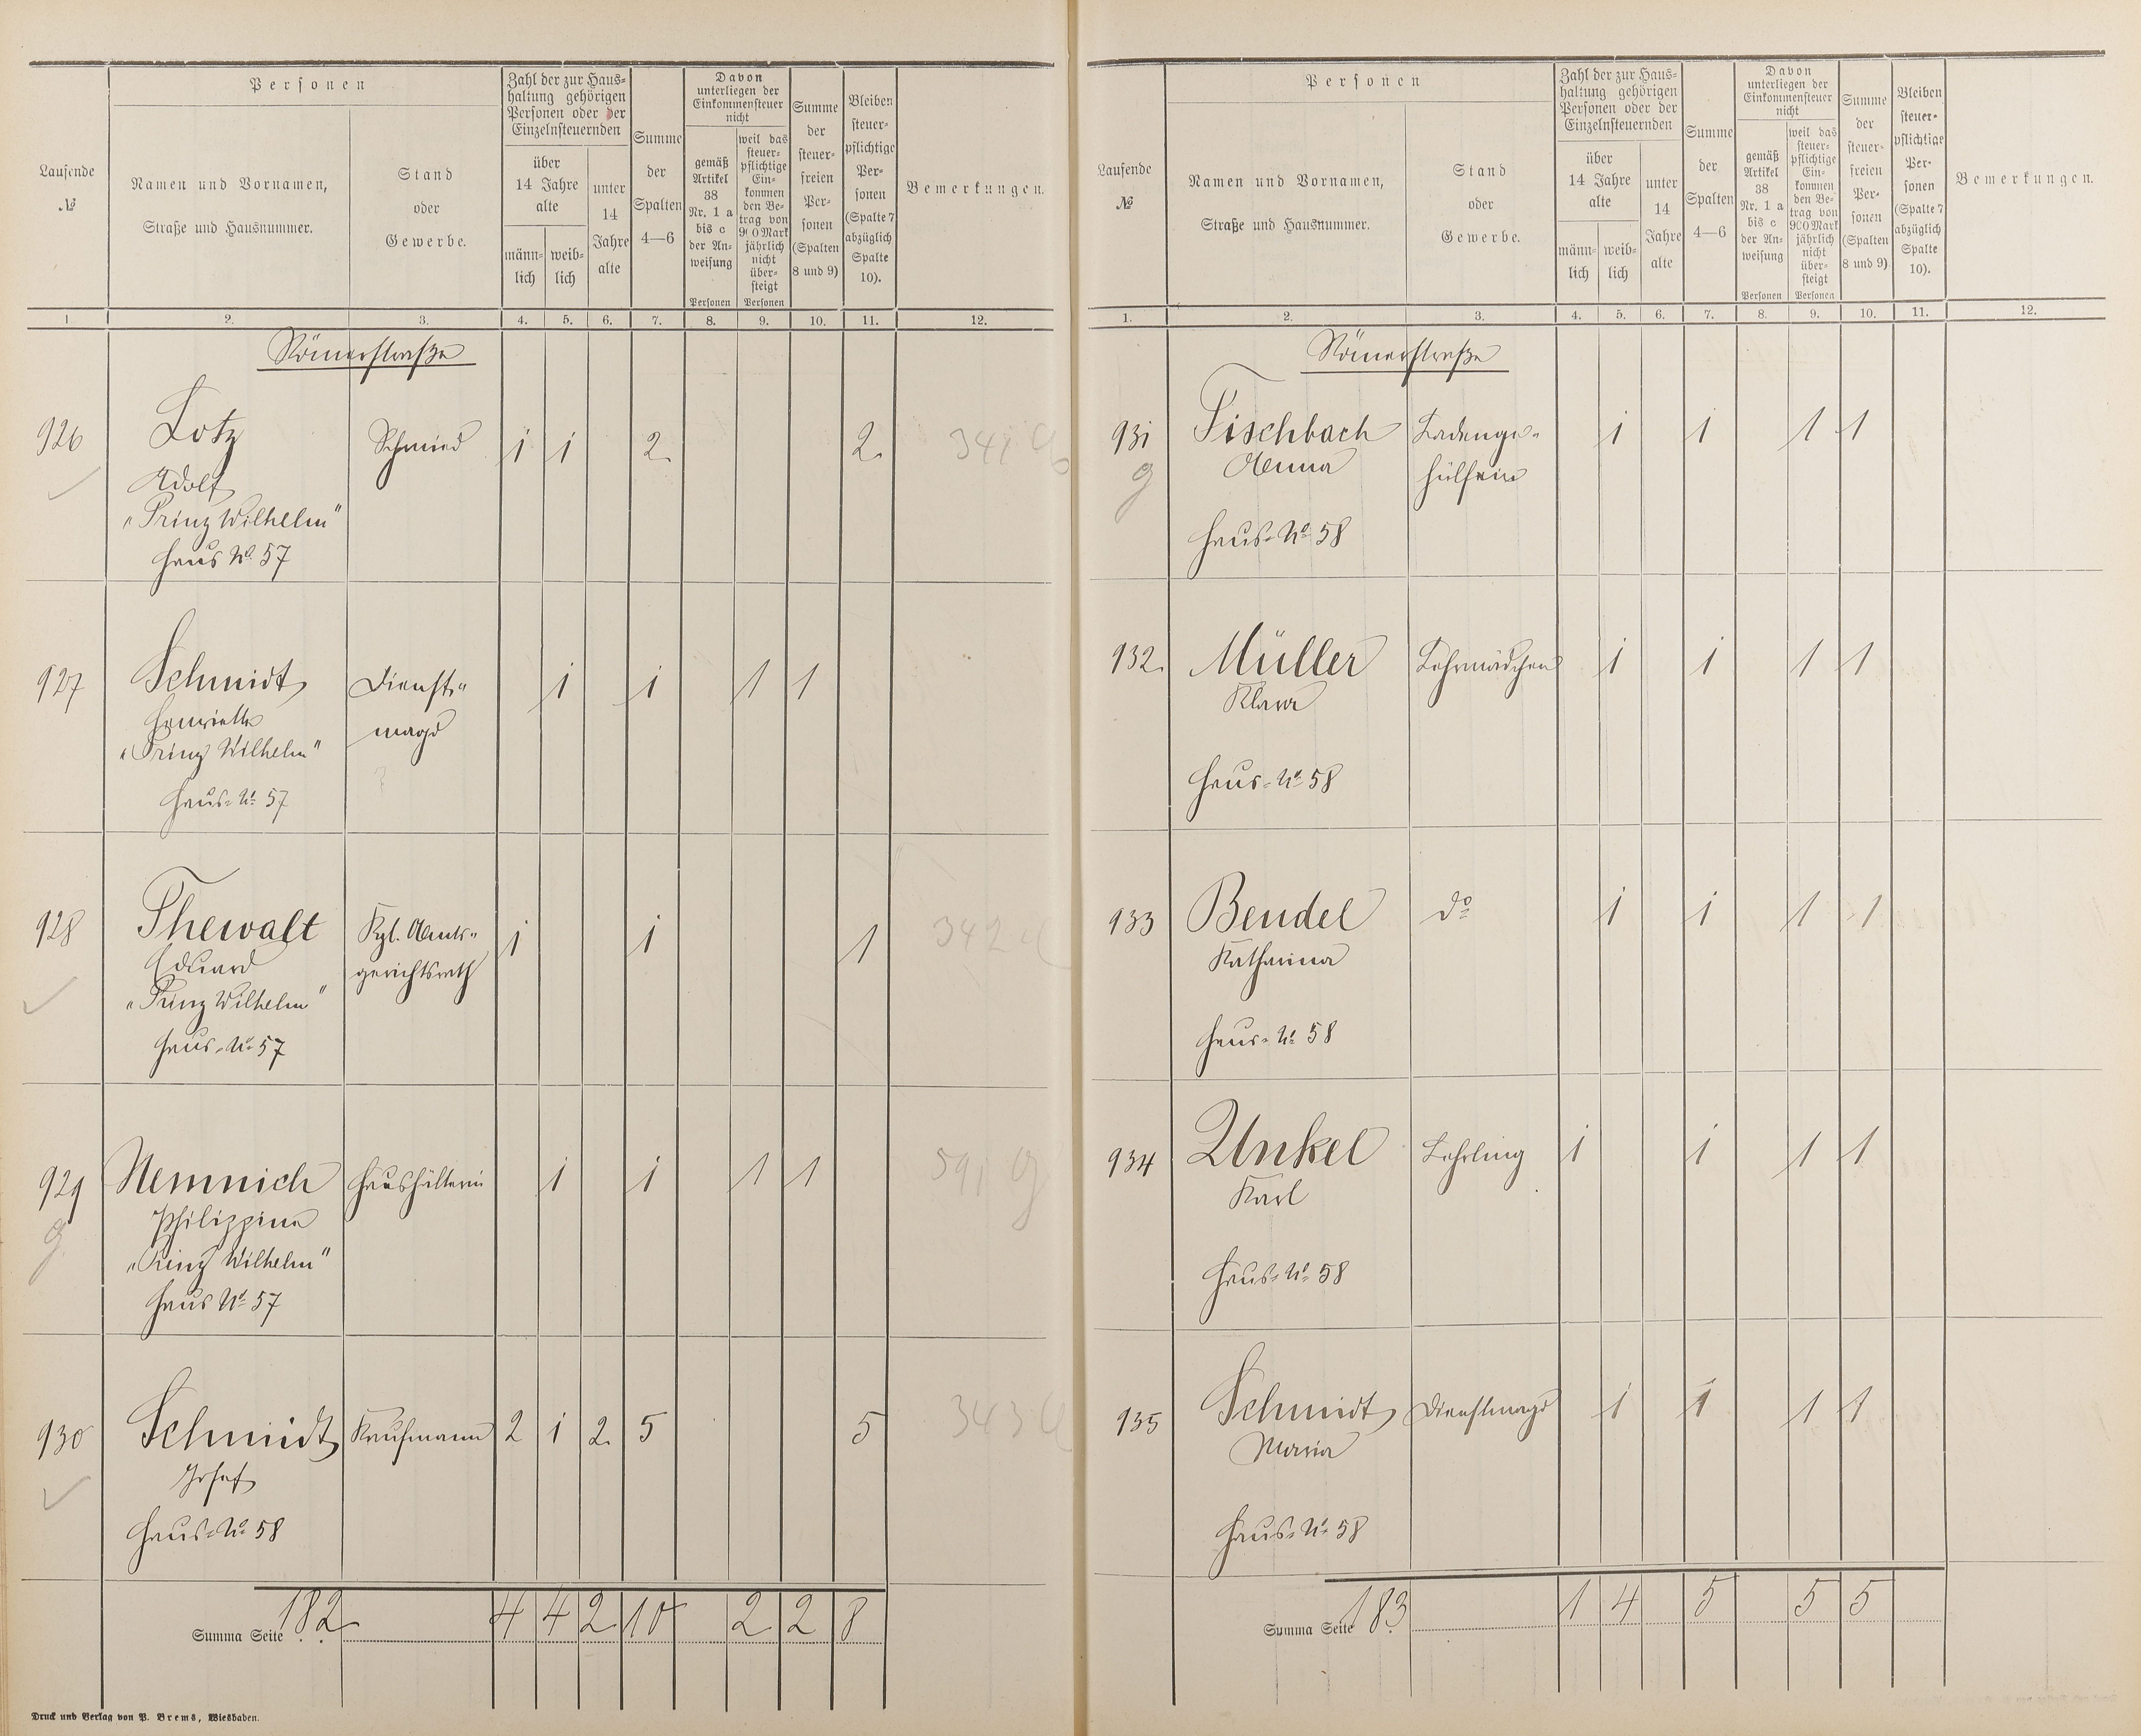 Personen
Laufende
№
Namen und Vornamen,
Straße und Hausnummer.
Stand
oder
Gewerbe.
Zahl der zur Haus-
haltung gehörigen
Personen oder der
Einzelnsteuernden
über
14 Jahre
alte
männ-
lich
weib-
lich
unter
14
Jahre
alte
Summe
der
Spalten
4—6
Davon
unterliegen der
Einkommensteuer
nicht
gemäß
Artikel
38
Nr. 1 a
bis c
der An-
weisung
Personen
weil das
steuer-
pflichtige
Ein-
kommen
den Be-
trag von
900 Mark
jährlich
nicht
über-
steigt
Personen
Summe
der
steuer-
freien
Per-
sonen
(Spalten
8 und 9)
Bleiben
steuer-
pflichtige
Per-
sonen
(Spalte 7
abzüglich
Spalte
10).
Bemerkungen.
1. 2. 3. 4. 5. 6. 7. 8. 9. 10. 11. 12.
Römerstraße
926 Lotz Schmied 1 1 2 2 341
Adolf
"Prinz Wilhelm"
Haus No 57
927 Schmidt Dienst- 1 1 1 1
Henriette magd
"Prinz Wilhelm"
Haus-No 57
928 Thewalt Kgl. Amts- 1 1 1 342
Eduard gerichtsrath
"Prinz Wilhelm"
Haus-No 57
929 Nemnich Haushälterin 1 1 1 1 591 g
g Philippine
"Prinz Wilhelm"
Haus No 57
930 Schmidt Kaufmann 2 1 2 5 5 343
Josef
Haus-No 58
Summa Seite 182 4 4 2 10 2 2 8
Druck und Verlag von P. Brems, Wiesbaden.
Personen
Laufende
№
Namen und Vornamen,
Straße und Hausnummer.
Stand
oder
Gewerbe.
Zahl der zur Haus-
haltung gehörigen
Personen oder der
Einzelnsteuernden
über
14 Jahre
alte
männ-
lich
weib-
lich
unter
14
Jahre
alte
Summe
der
Spalten
4—6
Davon
unterliegen der
Einkommensteuer
nicht
gemäß
Artikel
38
Nr. 1 a
bis c
der An-
weisung
Personen
weil das
steuer-
pflichtige
Ein-
kommen
den Be-
trag von
900 Mark
jährlich
nicht
über-
steigt
Personen
Summe
der
steuer-
freien
Per-
sonen
(Spalten
8 und 9)
Bleiben
steuer-
pflichtige
Per-
sonen
(Spalte 7
abzüglich
Spalte
10).
Bemerkungen.
1. 2. 3. 4. 5. 6. 7. 8. 9. 10. 11. 12.
Römerstraße
931 Fischbach Ladenge- 1 1 1 1
g Anna hülfein
Haus-No 58
932. Müller Lehrmädchen 1 1 1 1
Klara
Haus-No 58
933 Bendel do 1 1 1 1
Katharina
Haus-No 58
934 Unkel Lehrling 1 1 1 1
Karl
Haus-No 58
935 Schmidt Dienstmagd 1 1 1 1
Maria
Haus-No 58
Summa Seite 183 1 4 5 5 5